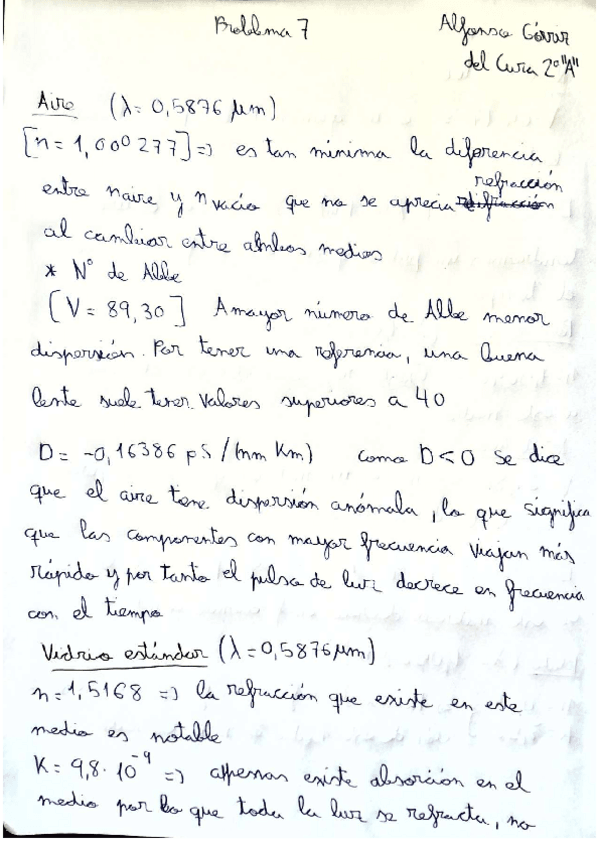 Problema 7
Alfonso Górriz
del Cura 2º "A"
Aire (λ = 0,5876 μm)
[n = 1,000277] => es tan mínima la diferencia
entre n aire y n vacío que no se aprecia refracción
al cambiar entre ambos medios
* Nº de Abbe
[V = 89,30] A mayor número de Abbe menor
dispersión. Por tener una referencia, una buena
lente suele tener valores superiores a 40
D = -0,16386 ps/(nm Km) como D<0 se dice
que el aire tiene dispersión anómala, lo que significa
que las componentes con mayor frecuencia viajan más
rápido y por tanto el pulso de luz decrece en frecuencia
con el tiempo
Vidrio estándar (λ = 0,5876 μm)
n = 1,5168 => la refracción que existe en este
medio es notable
K = 9,8 · 10⁻⁹ => apenas existe absorción en el
medio por lo que toda la luz se refracta, no